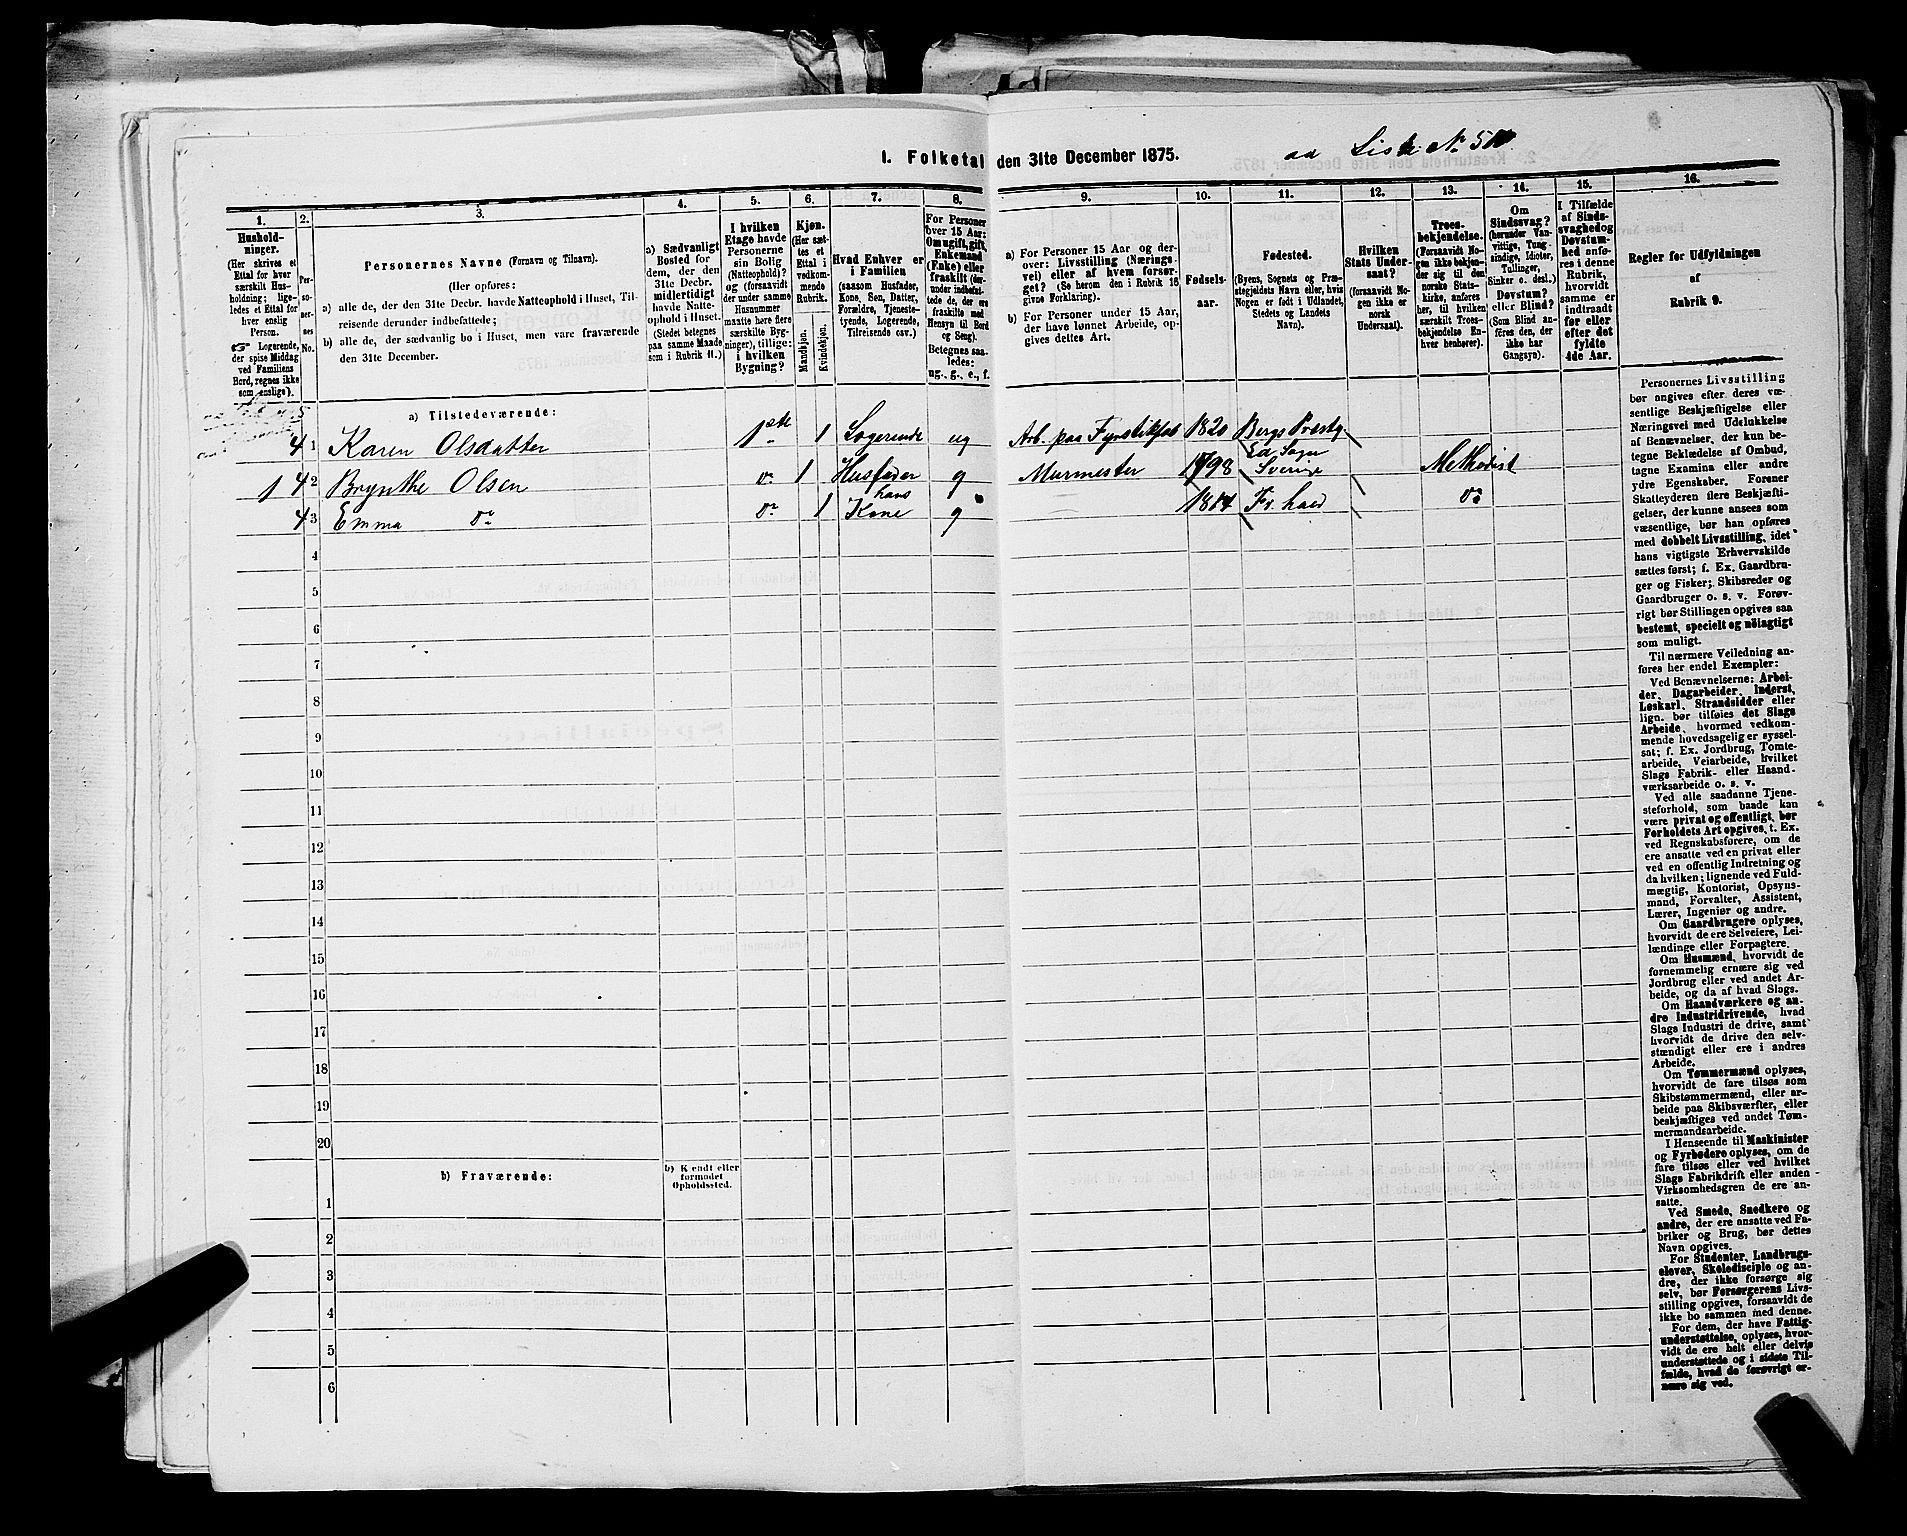 I. Folketal den 31te December 1875.
ad Liste No 51
1.
Husholdninger.
(Her skrives et
Ettal for hver
særskilt Husholdning;
ligeledes et Ettal for
hver enslig
Person.
Logerende,
der spise Middag
ved Familiens
Bord, regnes ikke
som enslige).
2.
Personernes No.
3.
Personernes Navne (Fornavn og Tilnavn).
(Her opføres:
a) alle de, der den 31te Decbr. havde Natteophold i Huset, Tilreisende derunder indbefattede;
b) alle de, der sædvanlig bo i Huset, men vare fraværende
den 31te December.
4.
a) Sædvanligt
Bosted for
dem, der den
31te Decbr.
midlertidigt
havde Natteophold i Huset.
(Stedet betegnes
paa samme Maade
som i Rubrik 11.)
5.
I hvilken
Etage havde
Personerne
sin Bolig
(Natteophold)?
og (forsaavidt
der under samme
Husnummer
maatte høre flere
særskilte Bygninger), tillige:
i hvilken
Bygning?
6.
Kjøn.
(Her sættes et
Ettal i
vedkommende
Rubrik.
Mandkjøn.
Kvindekjøn.
7.
Hvad Enhver er
i Familien
(saasom Husfader,
Kone, Søn, Datter,
Forældre, Tjenestetyende, Logerende,
Tilreisende osv.)
8.
For Personer
over 15 Aar:
Om ugift, gift,
Enkemand
(Enke) eller
fraskilt (derunder indbefattede de, der ere
fraskilte med
Hensyn til Bord
og Seng).
Betegnes saaledes:
ug., g., e., f.
9.
a) For Personer 15 Aar og derover: Livsstilling (Næringsvei) eller af hvem forsørget? (Se herom den i Rubrik 16
givne Forklaring).
b) For Personer under 15 Aar,
der have lønnet Arbeide, opgives dettes Art.
10.
Fødselsaar.
11.
Fødested.
(Byens, Sognets og Præstegjeldets Navn eller, hvis
Nogen er født i Udlandet,
Stedets og Landets
Navn).
12.
Hvilken
Stats Undersaat?
(forsaavidt Nogen ikke er
norsk
Undersaat).
13.
Troesbekjendelse.
(Forsaavidt Nogen ikke bekjender sig til den
norske Statskirke, anføres
her, til hvilken
særskilt Troesbekjendelse Enhver henhører).
14.
Om
Sindssvag?
(herunder Vanvittige, Tungsindige, Idioter,
Tullinger,
Sinker o. desl.)
Døvstum?
eller Blind?
(Som Blind anføres den, der
ikke har
Gangsyn).
15.
I Tilfælde
af Sindssvaghed og
Døvstumhed anføres i denne
Rubrik,
hvorvidt
samme er
indtraadt
før eller
efter det
fyldte
4de Aar.
16.
Regler for Udfyldningen
af
Rubrik 9.
a) Tilstedeværende:
4 1 Karen Olsdatter 1ste 1 Logerende ug Arb. paa Fyrstikfab 1820 Bergs Præstg.
1 4 2 Brynthe Olsen do 1 Husfader g Murmester 1798 Ed Sogn Sverige Methodist
4 3 Emma do do 1 hans Kone g 1814 Fr.hald do
4
5
6
7
8
9
10
11
12
13
14
15
16
17
18
19
20
b) Fraværende:
b) Kjendt eller
formodet
Opholdssted.
1
2
3
4
5
6
Personernes Livsstilling
bør angives efter deres væsentlige Beskjæftigelse eller
Næringsvei med Udelukkelse
af Benævnelser, der kun betegne Beklædelse af Ombud,
tagne Examina eller andre
ydre Egenskaber. Forener
Skatteyderen flere Beskjæftigelser, der kunne ansees som
væsentlige, bør han opføres
med dobbelt Livsstilling, idet
hans vigtigste Erhvervskilde
sættes først; f. Ex. Gaardbruger og Fisker; Skibsreder og
Gaardbruger o. s. v. Forøvrigt bør Stillingen opgives saa
bestemt, specielt og nøiagtigt
som muligt.
Til nærmere Veiledning anføres her endel Exempler:
Ved Benævnelserne: Arbeider, Dagarbeider, Inderst,
Løskarl, Strandsidder eller
lign. bør tilføies det Slags
Arbeide, hvormed vedkommende hovedsagelig er sysselsat; f. Ex. Jordbrug, Tomtearbeide, Veiarbeide, hvilket
Slags Fabrik- eller Haandværksarbeide o. s. v.
Ved alle saadanne Tjenesteforhold, som baade kan
være privat og offentligt, bør
Forholdets Art opgives, t. Ex.
ved Regnskabsførere, om de
ere ansatte ved en privat eller
ved en offentlig Indretning og
da hvilken; lignende ved Fuldmægtig, Kontorist, Opsynsmand, Forvalter, Assistent,
Lærer, Ingeniør og andre.
Om Gaardbrugere oplyses,
hvorvidt de ere Selveiere, Leilændinge eller Forpagtere.
Om Husmænd, hvorvidt de
fornemmelig ernære sig ved
Jordbrug eller ved andet Arbeide, og da af hvad Slags.
Om Haandværkere og andre Industridrivende, hvad
Slags Industri de drive, samt
hvorvidt de drive den selvstændigt eller ere i andres
Arbeide.
Om Tømmermænd oplyses,
hvorvidt de fare tilsøs som
Skibstømmermænd, eller arbeide paa Skibsværfter, eller
beskjæftiges ved andet Tømmermandsarbeide.
I Henseende til Maskinister
og Fyrbødere oplyses, om de
fare tilsøs eller ved hvilket
Slags Fabrikdrift eller anden
Virksomhedsgren de ere ansatte.
Ved Smede, Snedkere og
andre, der ere ansatte ved Fabriker og Brug, bør dettes
Navn opgives.
For Studenter, Landbrugselever, Skoledisciple og andre, der ikke forsørge sig
selv, bør Forsørgerens Livsstilling opgives, forsaavidt de
ikke bo sammen med denne.
For dem, der have Fattigunderstøttelse, oplyses, hvorvidt de ere helt eller delvis
understøttede og i sidste Tilfælde, hvad de forøvrigt ernære sig ved.